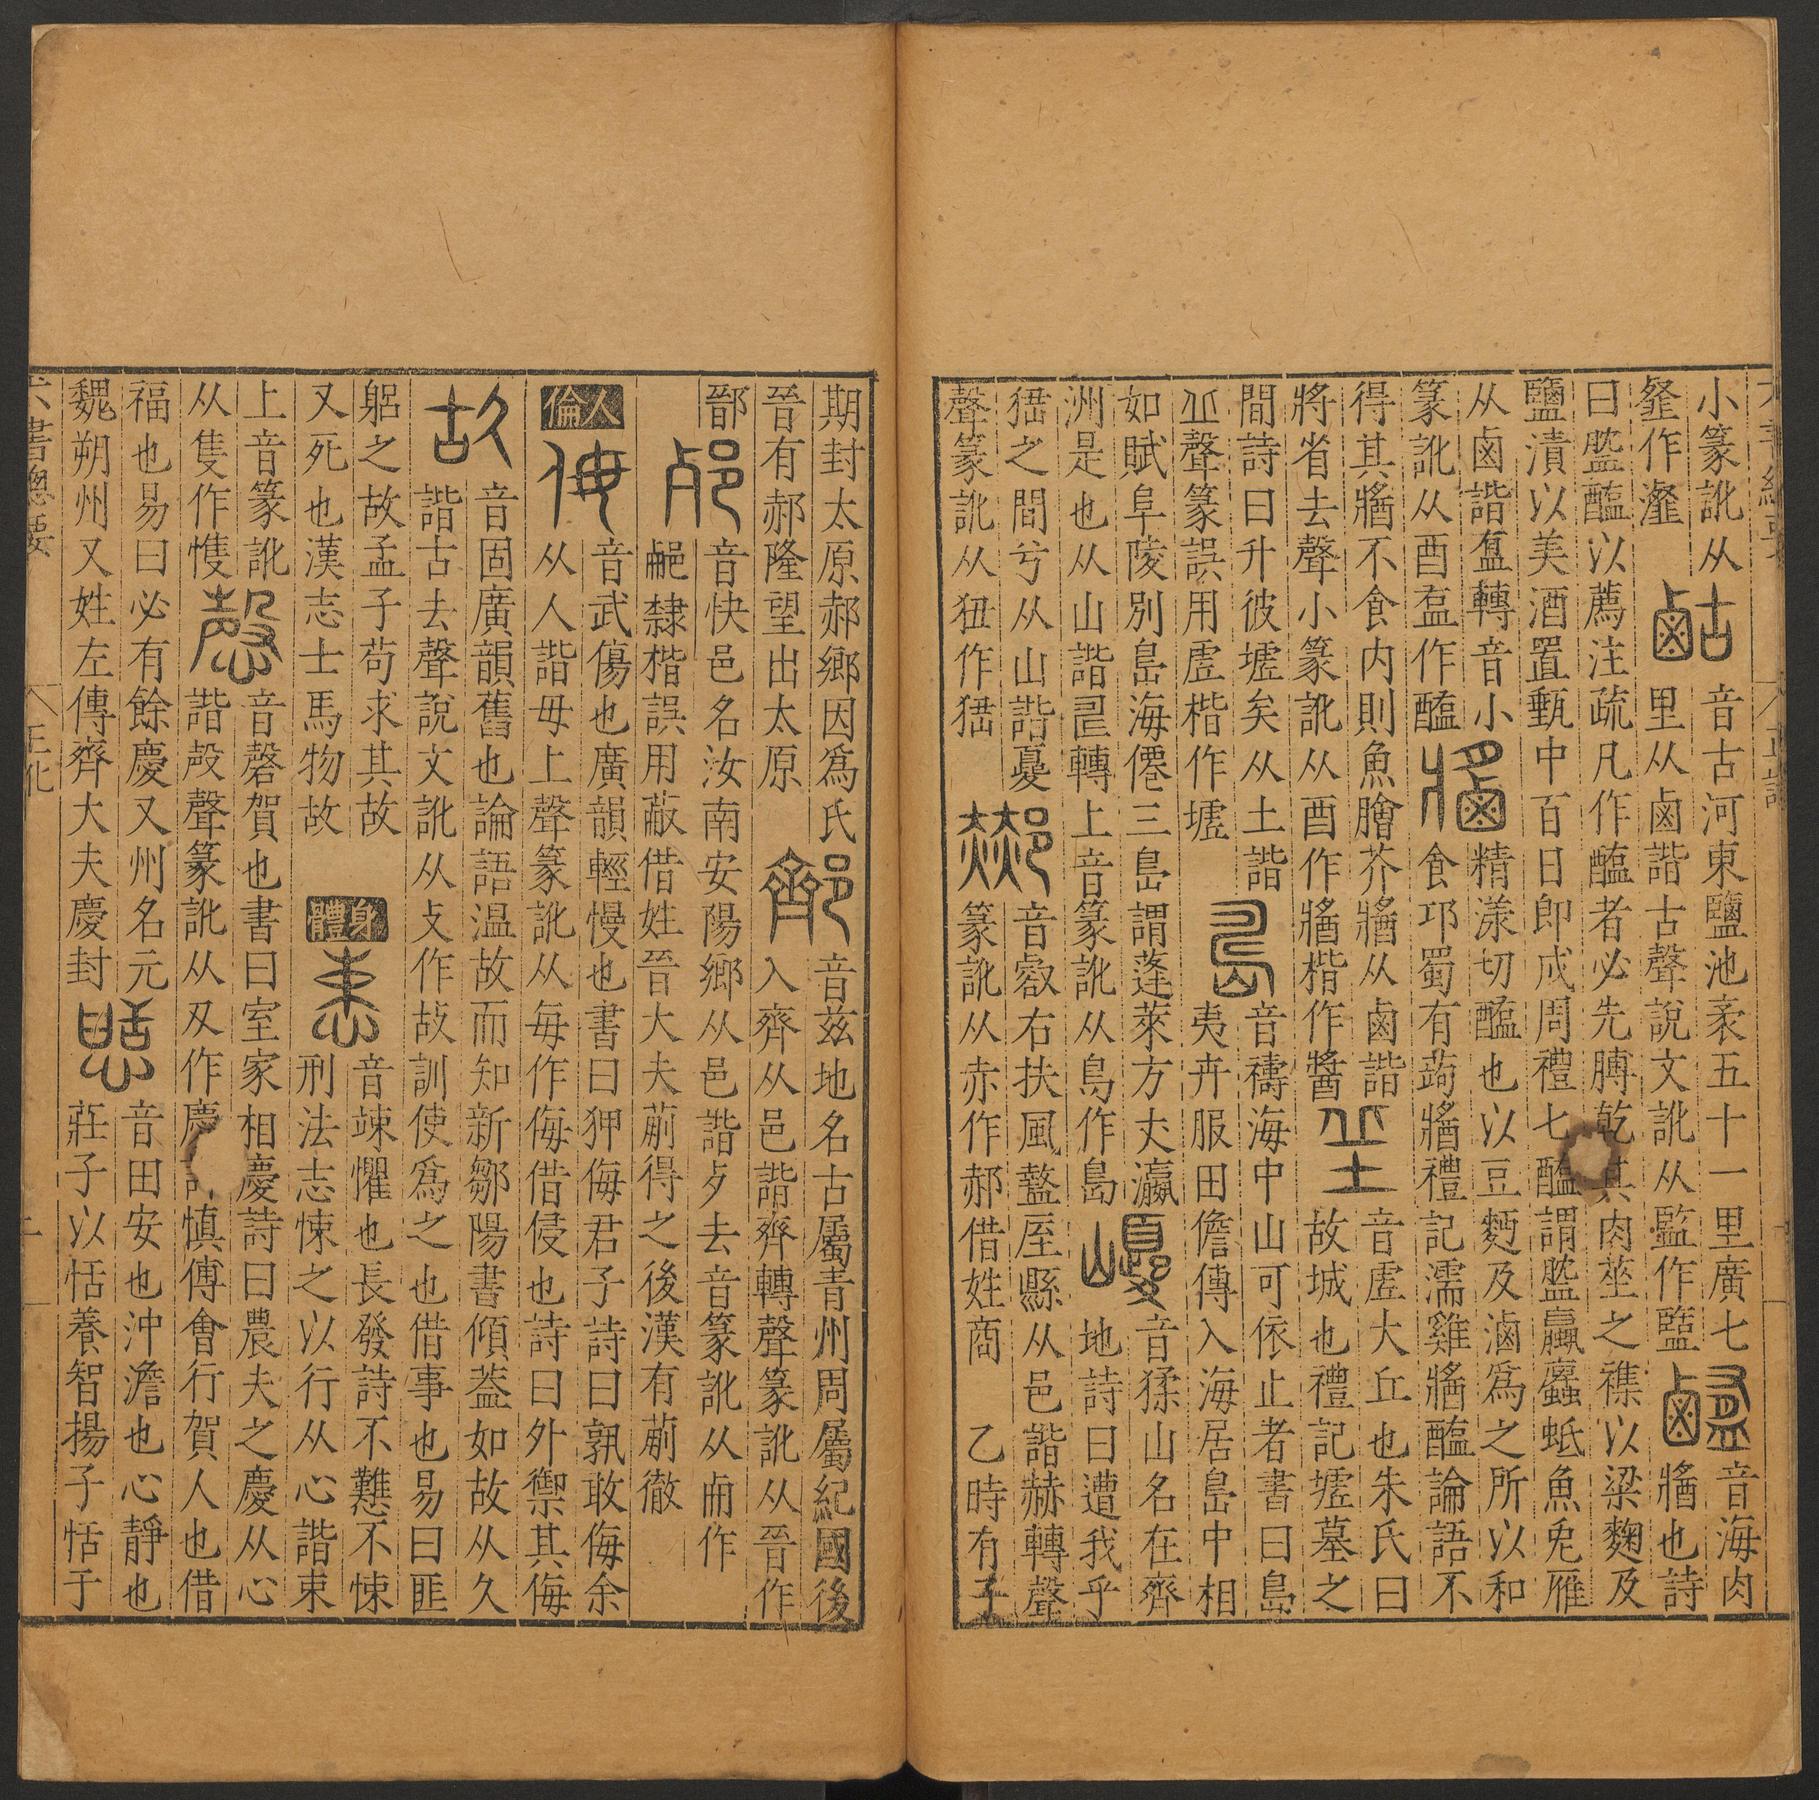 小篆訛从
音古河東鹽池袤五十一里廣七
音海肉
韰作瀣
里从鹵諧古聲說文訛从監作盬
醬也詩
曰醓醢以薦注疏凡作醢者必先膊乾其肉莝之襍以梁麴及
鹽漬以美酒置甄中百日即成周禮七醢謂醓蠃蠯蚳魚兔雁
从鹵諧㿽轉音小
精漾切醢也以豆麪及滷爲之所以和
篆訛从酉㿽作醢
食邛蜀有蒟牆禮記濡雞牆醢論語不
得其牆不食内則魚膾芥牆从鹵諧
音虛大丘也朱氏曰
將省去聲小篆訛从酉作牆楷作醬
故城也禮記墟墓之
間詩曰升彼墟矣从土諧
音禱海中山可依止者書曰島
丠聲篆誤用虛楷作墟
夷卉服田儋傳入海居島中相
如賦阜陵別島海僊三島謂蓬萊方丈瀛
音猱山名在齊
洲是也从山諧㠯轉上音篆訛从鳥作島
地詩曰遭我乎
峱之間兮从山諧憂
音㪇右扶風盩厔縣从邑諧赫轉聲
聲篆訛从狃作峱
篆訛从赤作郝借姓商
乙時有子
期封太原郝鄉因爲氏
音茲地名古屬青州周屬紀國後
晉有郝隆望出太原
入齊从邑諧齊轉聲篆訛从晉作
鄑
音快邑名汝南安陽鄉从邑諧歺去音篆訛从𠕁作
隸楷誤用蔽借姓晉大夫蒯得之後漢有蒯徹
人倫
音武傷也廣韻輕慢也書曰狎侮君子詩曰孰敢侮余
从人諧毋上聲篆訛从每作侮借侵也詩曰外禦其侮
音固廣韻舊也論語温故而知新鄒陽書傾蓋如故从久
諧古去聲說文訛从攴作故訓使爲之也借事也易曰匪
躳之故孟子苟求其故
又死也漢志士馬物故
身體
音竦懼也長發詩不戁不悚
刑法志悚之以行从心諧束
上音篆訛
音磬賀也書曰室家相慶詩曰農夫之慶从心
从隻作愯
諧㱿聲篆訛从夂作慶
慎傅會行賀人也借
福也易曰必有餘慶又州名元
音田安也沖澹也心靜也
魏朔州又姓左傳齊大夫慶封
莊子以恬養智揚子恬于
六書總要
正化